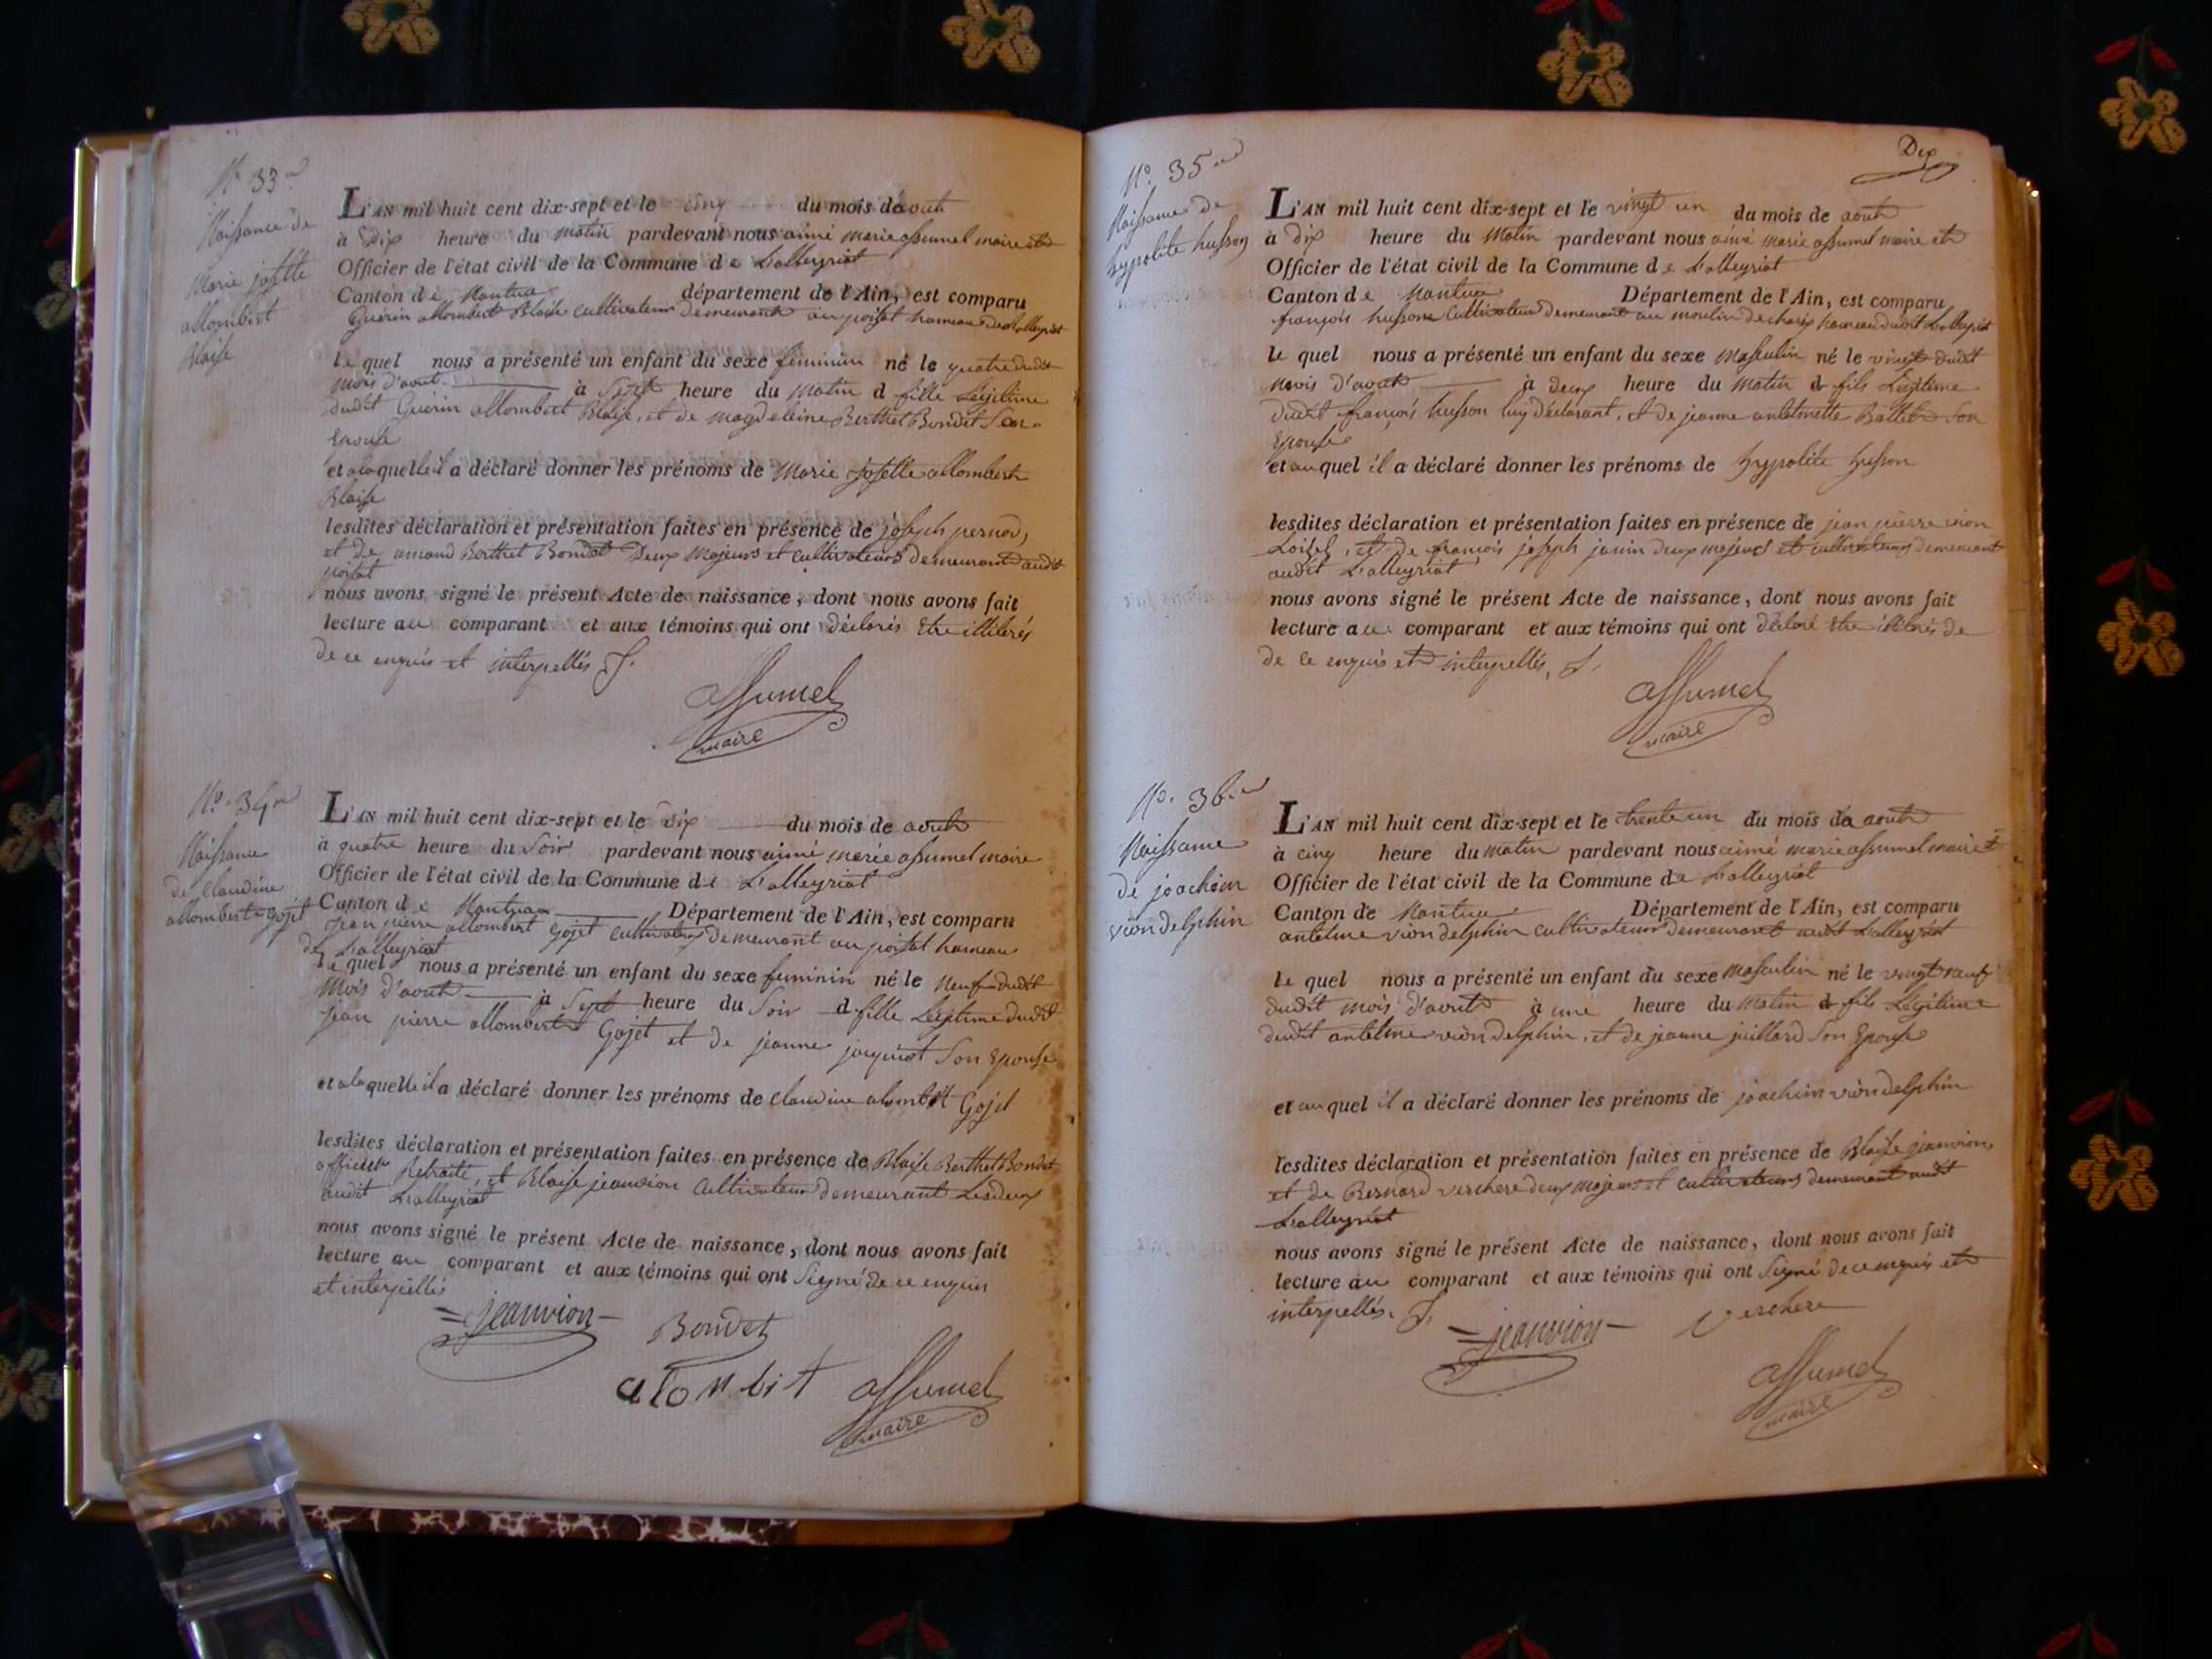 N.° 33.
Naissance de
Marie josette
allombert
Blaise
L'AN mil huit cent dix-sept et le cinq du mois d'aout
à Dix heure du matin pardevant nous aimé marie assumel maire et
Officier de l'état civil de la Commune de Lalleyriat
Canton de Nantua département de l'Ain, est comparu
Guérin allombert Blaise cultivateur demeurant au poisat hameau de Lalleyriat
le quel nous a présenté un enfant du sexe féminin né le quatre dudit
mois d'aout à Sept heure du matin d fille Légitime
dudit Guérin allombert Blaise, et de magdeleine Berthet Bondet Son
Epouse
et a laquelle il a déclaré donner les prénoms de Marie josette allombert
Blaise
lesdites déclaration et présentation faites en présence de joseph pernod,
et de amand Berthet Bondet Deux Majeurs et cultivateurs demeurant audit
poisat
nous avons signé le présent Acte de naissance, dont nous avons fait
lecture au comparant et aux témoins qui ont déclarés Etre illiterés
de ce enquis et interpellés
assumel
maire
N.° 34
Naissance
de Claudine
allombert Gojet
L'AN mil huit cent dix-sept et le dix du mois de aout
à quatre heure du Soir pardevant nous aimé marie assumel maire
Officier de l'état civil de la Commune de Lalleyriat
Canton de Nantua Département de l'Ain, est comparu
Jean pierre allombert Gojet cultivateur demeurant au poisat hameau
de Lalleyriat
le quel nous a présenté un enfant du sexe feminin né le Neuf dudit
Mois d'aout à Sept heure du Soir d fille Légitime dudit
jean pierre allombert Gojet et de jeanne jacquinot Son Epouse
et a laquelle il a déclaré donner les prénoms de Claudine alombet Gojet
lesdites déclaration et présentation faites en présence de Blaise Berthet Bondet
officier Retraité, et Blaise jeanvion Cultivateur demeurant Lesdeux
audit Lalleyriat
nous avons signé le présent Acte de naissance, dont nous avons fait
lecture au comparant et aux témoins qui ont Signé de ce enquis
et interpellés
jeanvion
Bondet
alonbit
assumel
maire
Dix
N.° 35
Naissance de
hypolite husson
L'AN mil huit cent dix-sept et le vingt un du mois de aout
à dix heure du Matin pardevant nous aimé marie assumel maire et
Officier de l'état civil de la Commune de Lalleyriat
Canton de Nantua Département de l'Ain, est comparu
françois husson Cultivateur demeurant au moulin de charix hameau dudit Lalleyriat
le quel nous a présenté un enfant du sexe Masculin né le vingt dudit
mois d'aout à deux heure du Matin d fils Légitime
dudit françois husson luy déclarant, et de jeanne antoinette Ballet Son
Epouse
et au quel il a déclaré donner les prénoms de hypolite husson
lesdites déclaration et présentation faites en présence de jean pierre vion
Loisel, et de françois joseph janin deux majeurs et cultivateurs demeurant
audit Lalleyriat
nous avons signé le présent Acte de naissance, dont nous avons fait
lecture au comparant et aux témoins qui ont déclaré Etre illitérés de
de ce enquis et interpellés.
assumel
maire
N.° 36
Naissance
de joachim
vion delphin
L'AN mil huit cent dix-sept et le trente un du mois de aout
à cinq heure du matin pardevant nous aimé marie assumel maire et
Officier de l'état civil de la Commune de Lalleyriat
Canton de Nantua Département de l'Ain, est comparu
antelme vion delphin cultivateur demeurant audit Lalleyriat
le quel nous a présenté un enfant du sexe Masculin né le vingt neuf
dudit mois d'aout à une heure du Matin d fils Légitime
dudit antelme vion delphin, et de jeanne juillard Son Epouse
et au quel il a déclaré donner les prénoms de joachim vion delphin
lesdites déclaration et présentation faites en présence de Blaise jeanvion,
et de Bernard verchere deux majeurs et cultivateurs demeurant audit
Lalleyriat
nous avons signé le présent Acte de naissance, dont nous avons fait
lecture au comparant et aux témoins qui ont Signé de ce enquis et
interpellés.
jeanvion
verchere
assumel
maire